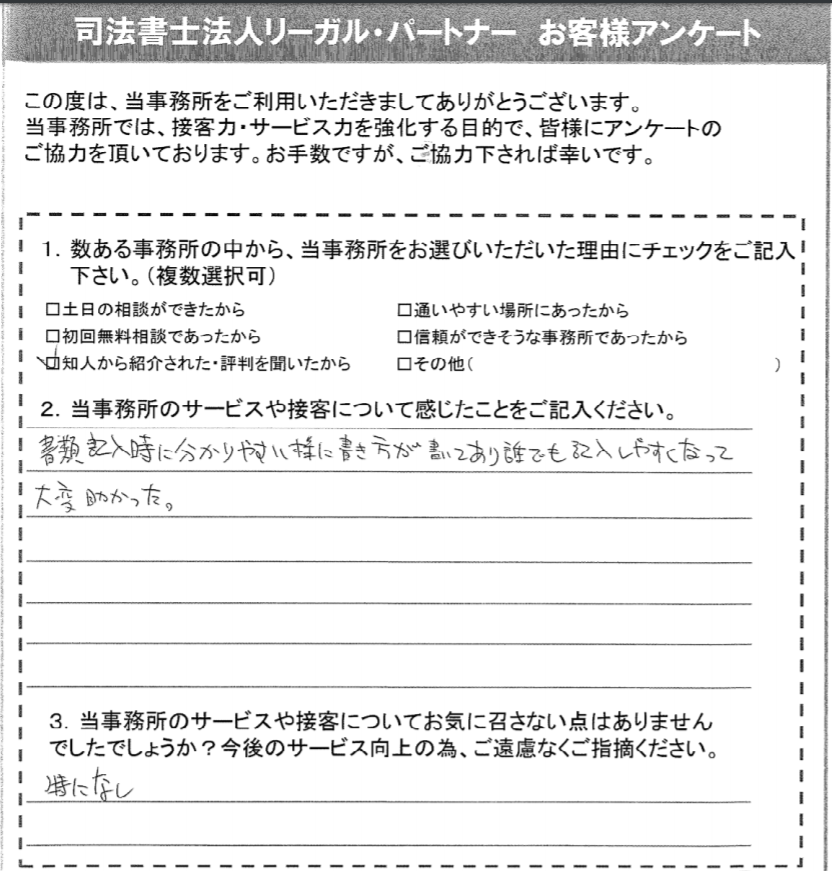 司法書士法人リーガル・パートナー お客様アンケート
この度は、当事務所をご利用いただきましてありがとうございます。
当事務所では、接客力・サービス力を強化する目的で、皆様にアンケートの
ご協力を頂いております。お手数ですが、ご協力下されば幸いです。
1. 数ある事務所の中から、当事務所をお選びいただいた理由にチェックをご記入
下さい。(複数選択可)
□土日の相談ができたから □通いやすい場所にあったから
□初回無料相談であったから □信頼ができそうな事務所であったから
☑知人から紹介された・評判を聞いたから □その他( )
2. 当事務所のサービスや接客について感じたことをご記入ください。
書類記入時に分かりやすい様に書き方が書いてあり誰でも記入しやすくなって
大変助かった。
3. 当事務所のサービスや接客についてお気に召さない点はありません
でしたでしょうか?今後のサービス向上の為、ご遠慮なくご指摘ください。
特になし